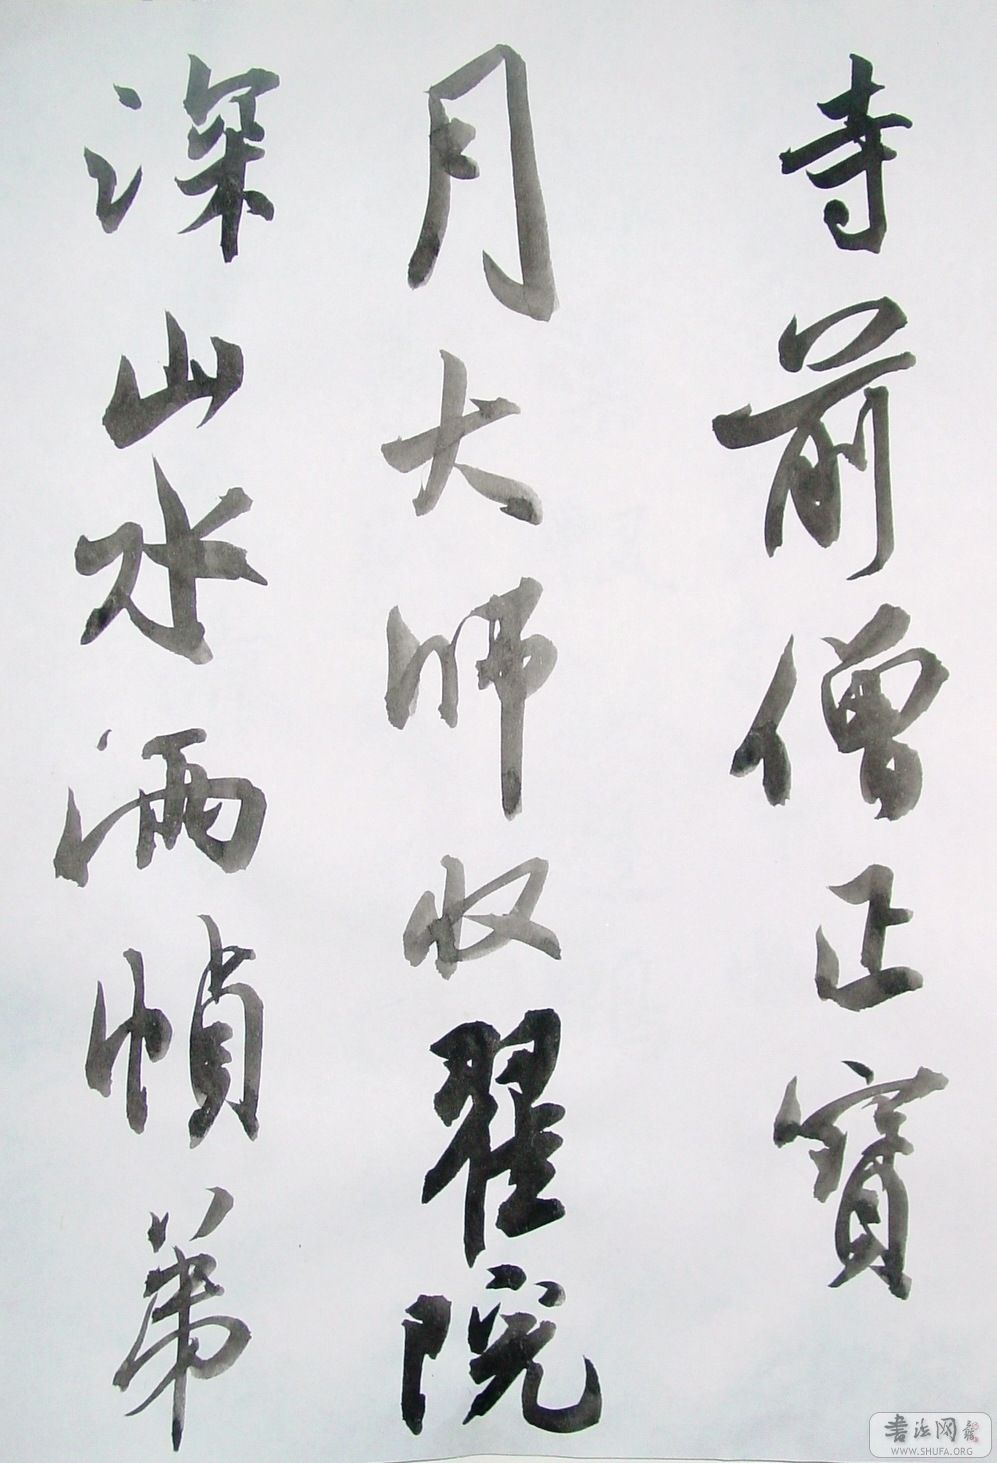 寺前僧正寶
月大师收翟院
深山水两幀弟
書法网
WWW.SHUFA.ORG